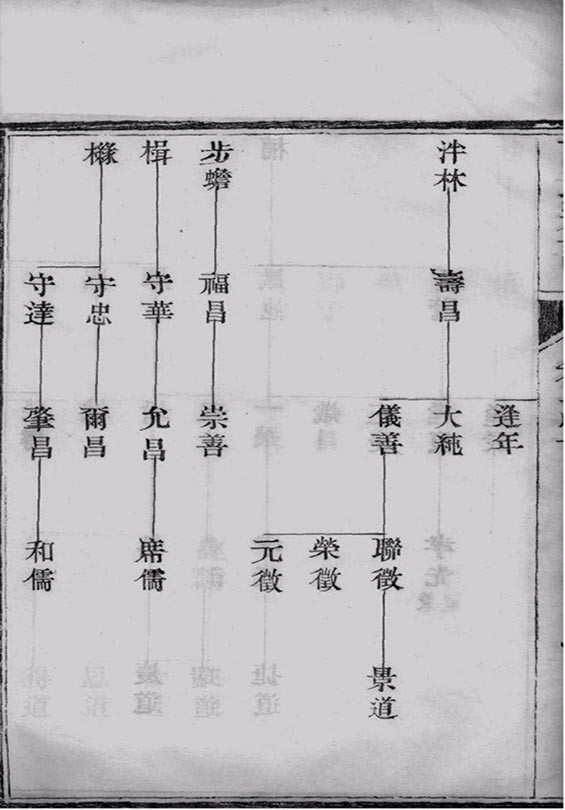 逢年
泮林
壽昌
大純
儀善
聯徵
景道
榮徵
元徵
步蟾
福昌
崇善
楫
守華
允昌
席儒
守忠
爾昌
守達
肇昌
和儒